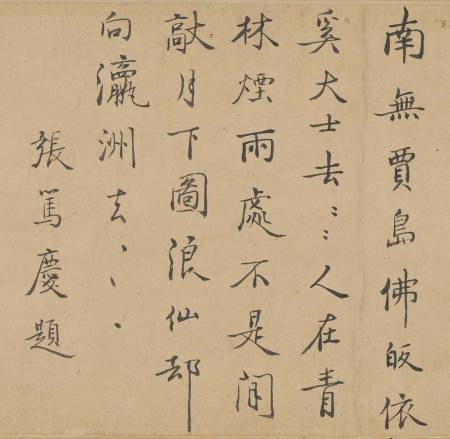 南無賈島佛皈依
奚大士去〻〻人在青
林煙雨處不是閒
敲月下圖浪仙却
向瀛洲去、、、
張篤慶題